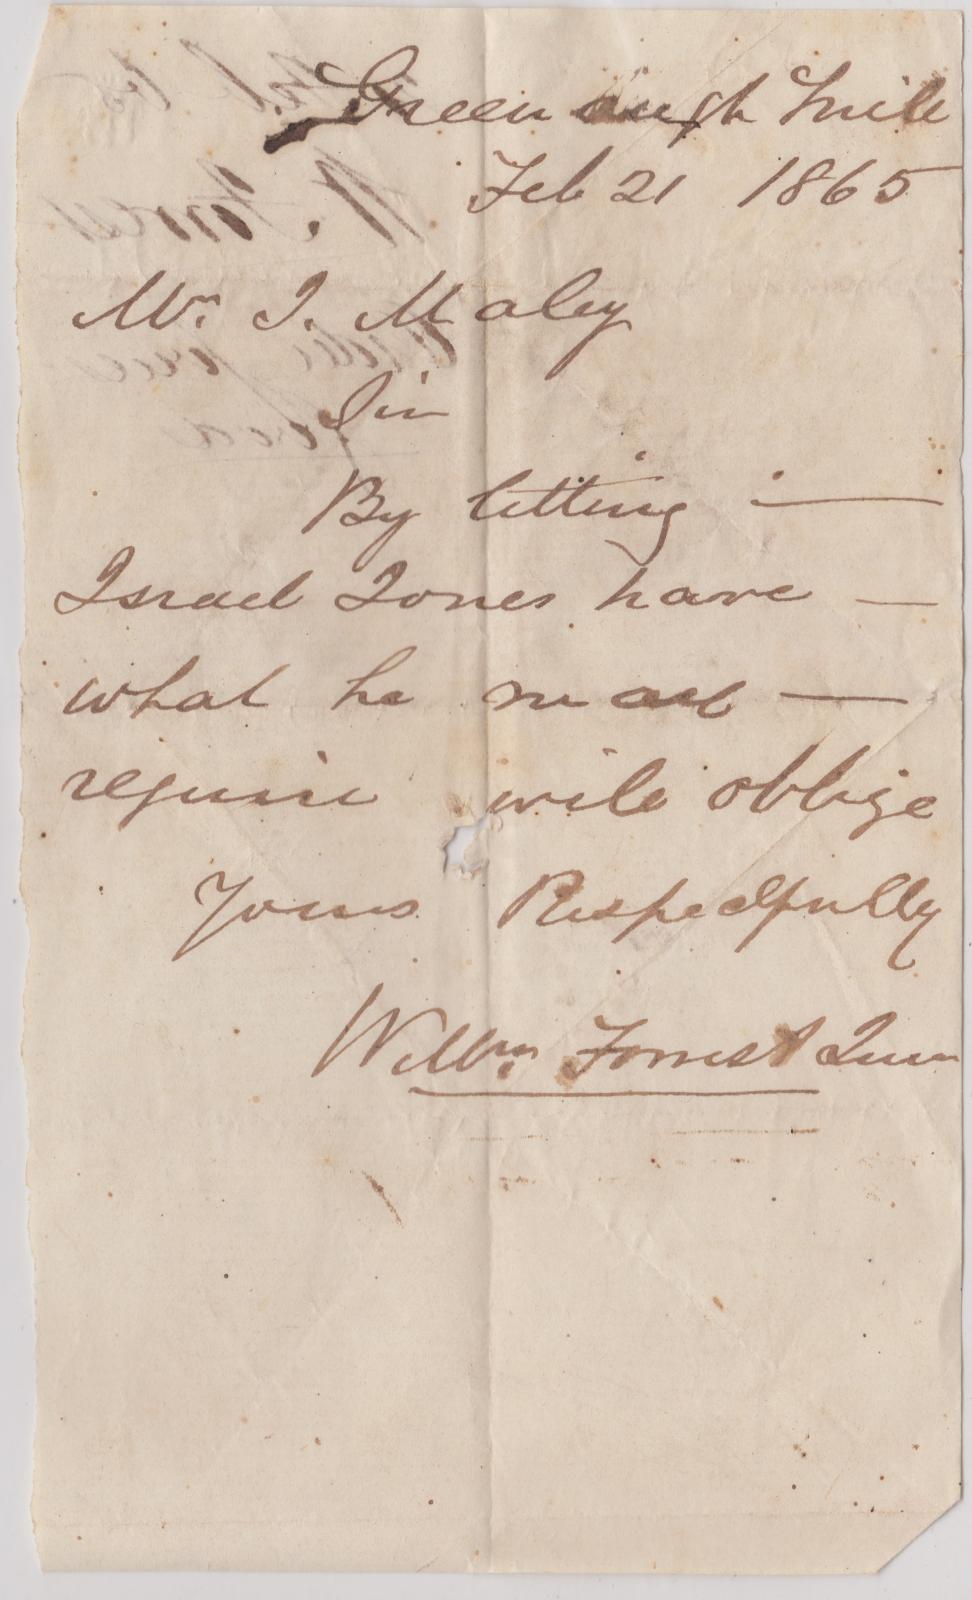 Greenough Mill
Feb 21 1865
Mr. J. Maley
Sir
By letting —
Israel Jones have —
what he may —
require will oblige
Yours Respectfully
Willm. Forrest Junr